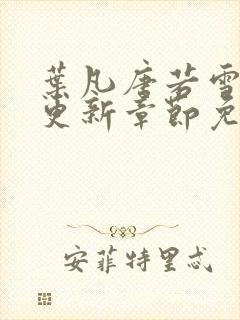 葉凡唐若雪
更新章節免
安菲特里忒